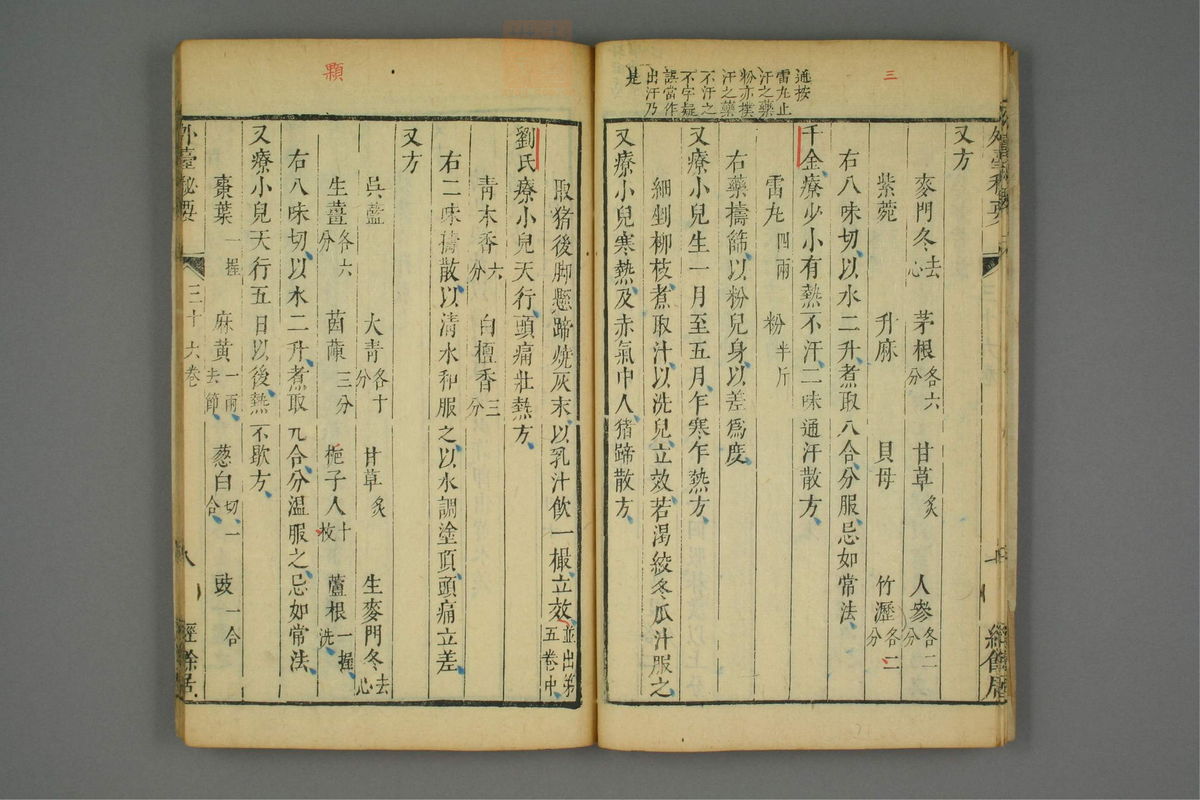 三
通按
雷丸止
汗之藥
粉亦撲
汗之藥
不汗之
不字疑
誤當作
出汗乃
是
又方
麥門冬去心 茅根各六分 甘草炙 人參各二分
紫菀 升麻 貝母 竹瀝各二分
右八味切以水二升煮取八合分服忌如常法
千金療少小有熱不汗二味通汗散方
雷丸四兩 粉半斤
右藥擣篩以粉兒身以差為度
又療小兒生一月至五月乍寒乍熱方
細剉柳枝煮取汁以洗兒立效若渴絞冬瓜汁服之
又療小兒寒熱及赤氣中人猪蹄散方
顆
取猪後脚懸蹄燒灰末以乳汁飲一撮立效並出第五卷中
劉氏療小兒天行頭痛壯熱方
青木香六分 白檀香三分
右二味擣散以清水和服之以水調塗頂頭痛立差
又方
吳藍 大青各十分 甘草炙 生麥門冬去心
生薑各六分 茵蔯三分 梔子人十枚 蘆根一握洗
右八味切以水二升煮取九合分溫服之忌如常法
又療小兒天行五日以後熱不歇方
棗葉一握 麻黃一兩去節 葱白切一合 豉一合
外臺秘要 三十六卷 八 經餘居